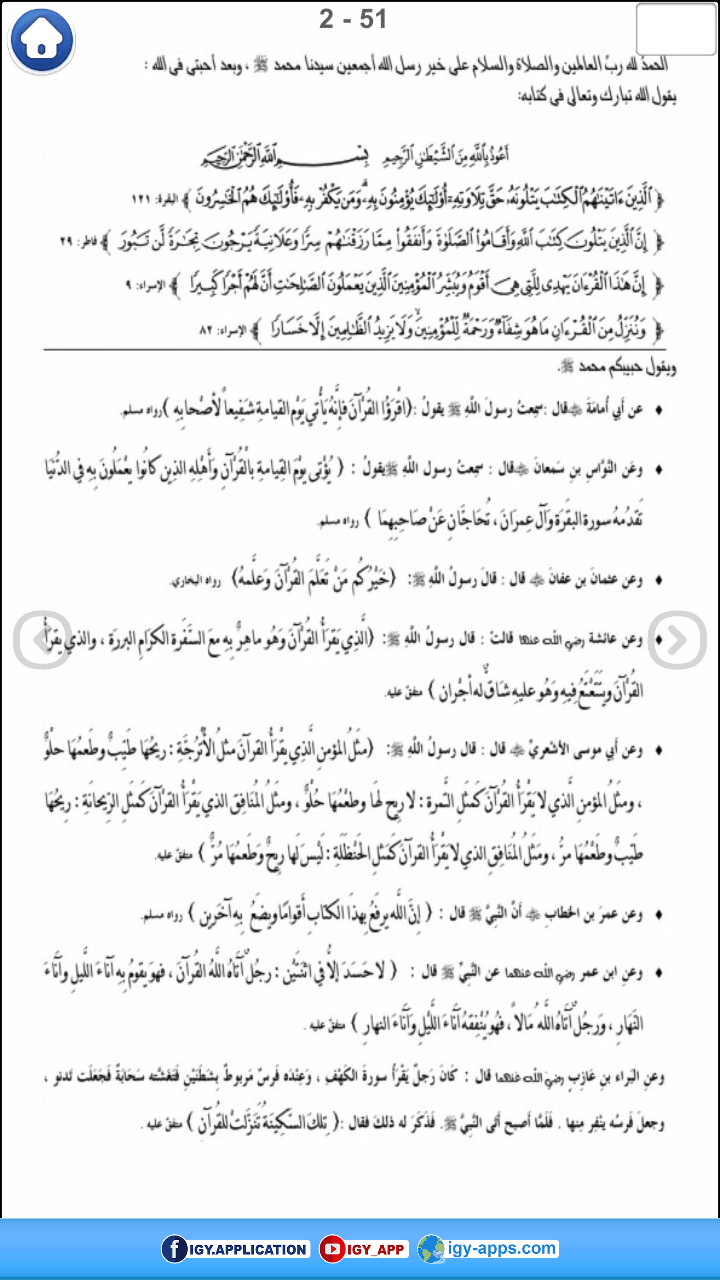 2 - 51
الحمدُ لله ربِّ العالمين والصلاة والسلام على خير رسل الله أجمعين سيدنا محمد ﷺ ، وبعد أحبتى فى الله :
يقول الله تبارك وتعالى فى كتابه:
أَعُوذُ بِاللَّهِ مِنَ الشَّيْطَانِ الرَّجِيمِ بِسْمِ اللَّهِ الرَّحْمَٰنِ الرَّحِيمِ
﴿ الَّذِينَ ءَاتَيْنَٰهُمُ الْكِتَٰبَ يَتْلُونَهُۥ حَقَّ تِلَاوَتِهِۦٓ أُو۟لَٰٓئِكَ يُؤْمِنُونَ بِهِۦ ۗ وَمَن يَكْفُرْ بِهِۦ فَأُو۟لَٰٓئِكَ هُمُ الْخَٰسِرُونَ ﴾ البقرة: ١٢١
﴿ إِنَّ الَّذِينَ يَتْلُونَ كِتَٰبَ اللَّهِ وَأَقَامُوا الصَّلَوٰةَ وَأَنفَقُوا مِمَّا رَزَقْنَٰهُمْ سِرًّا وَعَلَانِيَةً يَرْجُونَ تِجَٰرَةً لَّن تَبُورَ ﴾ فاطر: ٢٩
﴿ إِنَّ هَٰذَا الْقُرْءَانَ يَهْدِى لِلَّتِى هِىَ أَقْوَمُ وَيُبَشِّرُ الْمُؤْمِنِينَ الَّذِينَ يَعْمَلُونَ الصَّٰلِحَٰتِ أَنَّ لَهُمْ أَجْرًا كَبِيرًا ﴾ الإسراء: ٩
﴿ وَنُنَزِّلُ مِنَ الْقُرْءَانِ مَا هُوَ شِفَآءٌ وَرَحْمَةٌ لِّلْمُؤْمِنِينَ ۙ وَلَا يَزِيدُ الظَّٰلِمِينَ إِلَّا خَسَارًا ﴾ الإسراء: ٨٢
ويقول حبيبكم محمد ﷺ.
♦ عن أبي أُمامَةَ ﷺ قال :سمِعتُ رسولَ اللَّهِ ﷺ يقولُ :(اقْرَؤُا القُرْآنَ فإِنَّهُ يَأْتي يَوْم القيامةِ شَفِيعاً لأصْحابِهِ )رواه مسلم.
♦ وعَن النَّوَّاسِ بنِ سَمعانَ قال : سمعتُ رسول اللَّهِ ﷺ يقولُ : ( يُؤْتى يوْمَ القِيامةِ بالْقُرْآنِ وَأَهْلِهِ الذِين كانُوا يعْمَلُونَ بِهِ في الدُّنيَا
تَقدُمهُ سورة البقَرَة وَآل عِمرَانَ ، تُحَاجَّانِ عَنْ صَاحِبِهِمَا ) رواه مسلم.
♦ وعن عثمانَ بن عفانَ قال : قالَ رسولُ اللَّهِ ﷺ: (خَيرُكُم مَنْ تَعَلَّمَ القُرْآنَ وَعلَّمهُ) رواه البخاري.
♦ وعن عائشة رضي الله عنها قالتْ : قال رسولُ اللَّهِ ﷺ: (الَّذِي يَقرَأُ القُرْآنَ وَهُو ماهِرٌ بِهِ معَ السَّفَرةِ الكرَامِ البررَةِ ، والذي يقرَأُ
القُرْآنَ ويتَتَعْتَعُ فِيهِ وَهُو عليهِ شَاقٌّ له أجْران ) متفق عليه.
♦ وعن أبي موسى الأشعريِّ قال : قال رسولُ اللَّهِ ﷺ: (مثَلُ المؤمنِ الَّذِي يقْرَأُ القرآنَ مثلُ الأُتْرُجَّةِ : ريحُهَا طَيِّبٌ وطَعمُهَا حلْوٌ
، ومثَلُ المؤمنِ الَّذي لا يَقْرَأُ القُرْآنَ كَمثَلِ التَّمرةِ : لا رِيح لهَا وطعْمُهَا حُلْوٌ ، ومثَلُ المُنَافِق الذي يَقْرَأُ القرْآنَ كَمثَلِ الرِّيحانَةِ : رِيحُهَا
طَيّبٌ وطَعْمُهَا مرُّ ، ومَثَلُ المُنَافِقِ الذي لا يَقْرَأُ القرآنَ كَمثلِ الحَنْظَلَةِ : لَيْسَ لَها رِيحٌ وَطَعمُهَا مُرٌّ ) متفق عليه.
♦ وعن عمرَ بن الخطابِ أنَّ النَّبيَّ ﷺ قال : ( إنَّ اللَّه يرفَعُ بهذَا الكتَابِ أَقوامًا ويضَعُ بِهِ آخَرِين ) رواه مسلم.
♦ وعنِ ابن عمر رضي الله عنهما عن النَّبيِّ ﷺ قال : ( لا حَسَدَ إلاَّ في اثنَتَيْنِ : رجُلٌ آتَاهُ اللَّهُ القُرآنَ ، فهوَ يقومُ بِهِ آنَاءَ اللَّيلِ وَآنَاءَ
النَّهَارِ ، وَرجُلٌ آتَاهُ اللَّه مَالاً ، فهُو يُنْفِقهُ آنَاءَ اللَّيْلِ وَآنَاءَ النهارِ ) متفق عليه .
وعنِ البَراءِ بنِ عَازِبٍ رضي الله عنهما قال : كَانَ رَجلٌ يَقْرَأُ سورةَ الكَهْفِ ، وَعِنْدَه فَرسٌ مَربوطٌ بِشَطَنَيْنِ فَتَغَشَّته سَحَابَةٌ فَجَعَلَت تَدنو ،
وجعلَ فَرسُه ينْفِر مِنها . فَلَمَّا أصبح أتَى النَّبيَّ ﷺ. فَذَكَرَ له ذلكَ فقال :( تِلكَ السَّكِينَةُ تَنزَّلتْ للقُرآنِ ) متفق عليه .
IGY.APPLICATION IGY_APP igy-apps.com